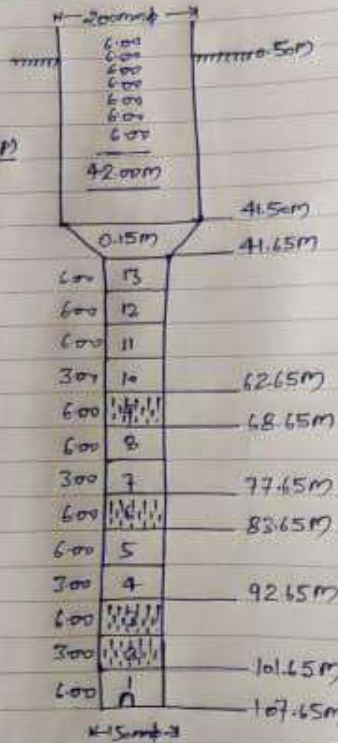 200mmφ
0.50M
6.00
6.00
6.00
6.00
6.00
6.00
6.00
42.00M
41.50M
0.15M
41.65M
6.00 13
6.00 12
6.00 11
3.00 10
62.65M
6.00
68.65M
6.00 8
3.00 7
77.65M
6.00 6
83.65M
6.00 5
3.00 4
92.65M
6.00 3
3.00 2
101.65M
6.00 1
107.65M
150mmφ